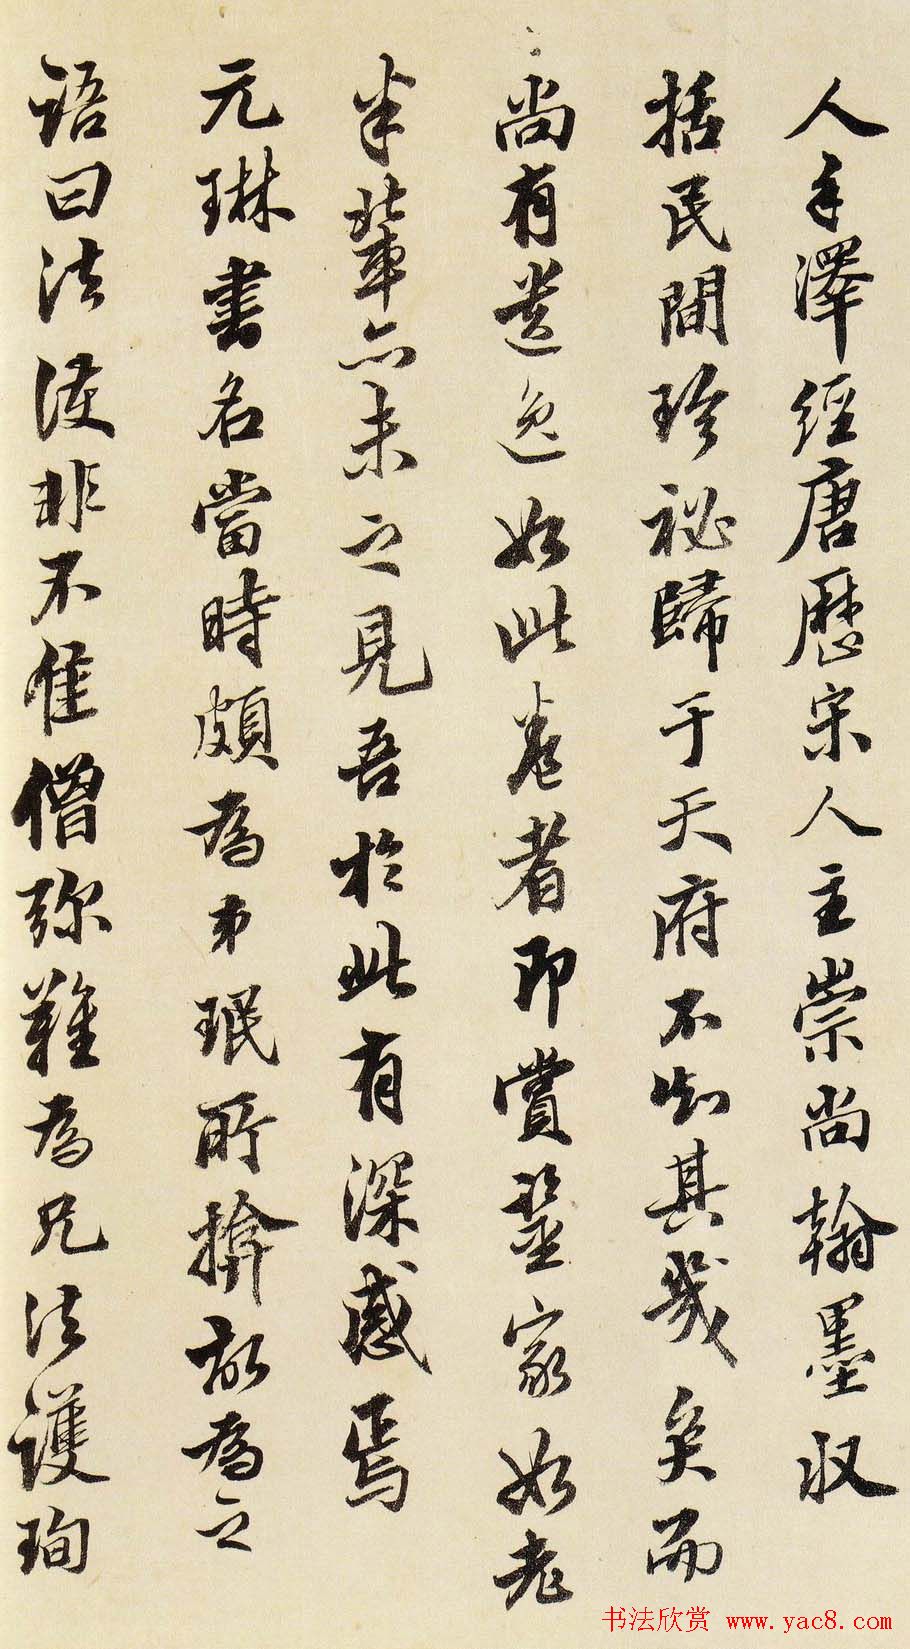 人手澤經唐歷宋人主崇尚翰墨収
括民間珍祕歸于天府不知其幾矣而
尚有遺逸如此卷者即賞鑒家如老
米輩亦未之見吾於此有深感焉
元琳書名當時頗為弟珉所揜故為之
語曰法護非不佳僧彌難為兄法護珣
书法欣赏 www.yac8.com